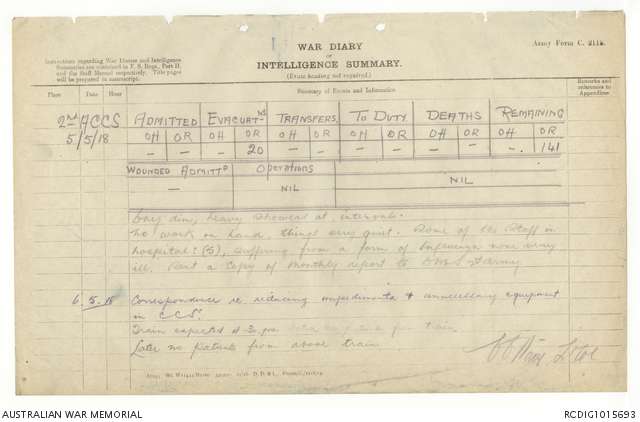 WAR DIARY
OR
INTELLIGENCE SUMMARY.
(Erase heading not required.)
Army Form C. 2118.
Instructions regarding War Diaries and Intelligence
Summaries are contained in F. S. Regs., Part II.
and the Staff Manual respectively. Title pages
will be prepared in manuscript.
Place Date Hour
Summary of Events and Information
Remarks and
references to
Appendices
2nd ACCS
5/5/18
ADMITTED EVACUATNS TRANSFERS TO DUTY DEATHS REMAINING
OH OR OH OR OH OR OH OR OH OR OH OR
– – – 20 – – – – – – – 141
WOUNDED ADMITTD Operations
– NIL NIL
day dim, heavy showers at intervals.
No work on hand, things very quiet. Some of the Staff in
hospital (5), suffering from a form of Influenza none very
ill. Sent a copy of monthly report to DMS Army
6 5. 18 Correspondence re reducing impedimenta & unnecessary equipment
in CCS.
Train expected at for train
Later no patients from above train
AUSTRALIAN WAR MEMORIAL
RCDIG1015693